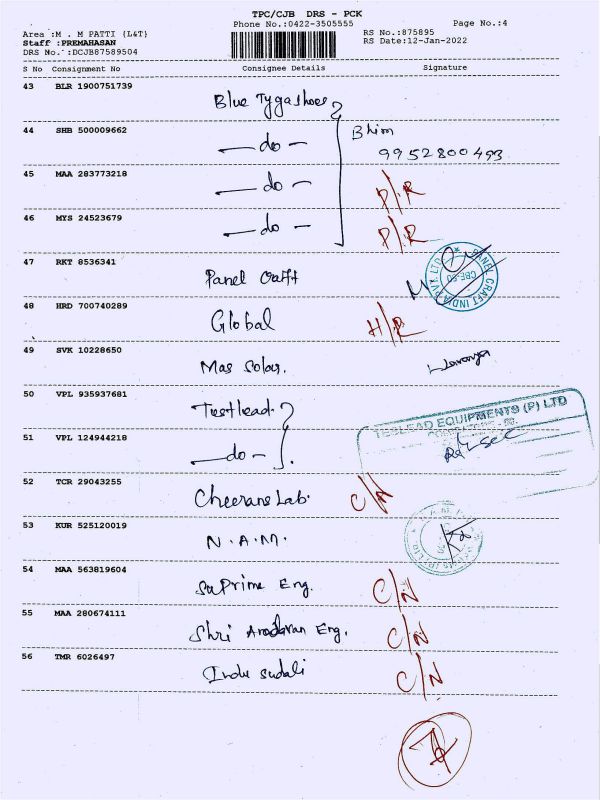 TPC/CJB DRS - PCK
Phone No.:0422-3505555
Page No.:4
Area :M . M PATTI {L&T}
RS No.:875895
Staff :PREMAHASAN
RS Date:12-Jan-2022
DRS No.:DCJB87589504
S No Consignment No Consignee Details Signature
43 BLR 1900751739 Blue Tygashoes
44 SHB 500009662 —do— Bhim
9952800493
45 MAA 283773218 —do— P/R
46 MYS 24523679 —do— P/R
47 RKT 8536341 Panel Craft
PANEL CRAFT INDIA PVT. LTD
48 HRD 700740289 Global H/R
49 SVK 10228650 Mas Solar.
50 VPL 935937681 Testlead.
TESLEAD EQUIPMENTS (P) LTD
51 VPL 124944218 —do—
52 TCR 29043255 Cheerans Lab. C/N
53 KUR 525120019 N.A.M.
54 MAA 563819604 SuPrime Eng. C/N
55 MAA 280674111 Shri Eng. C/N
56 TMR 6026497 C/N